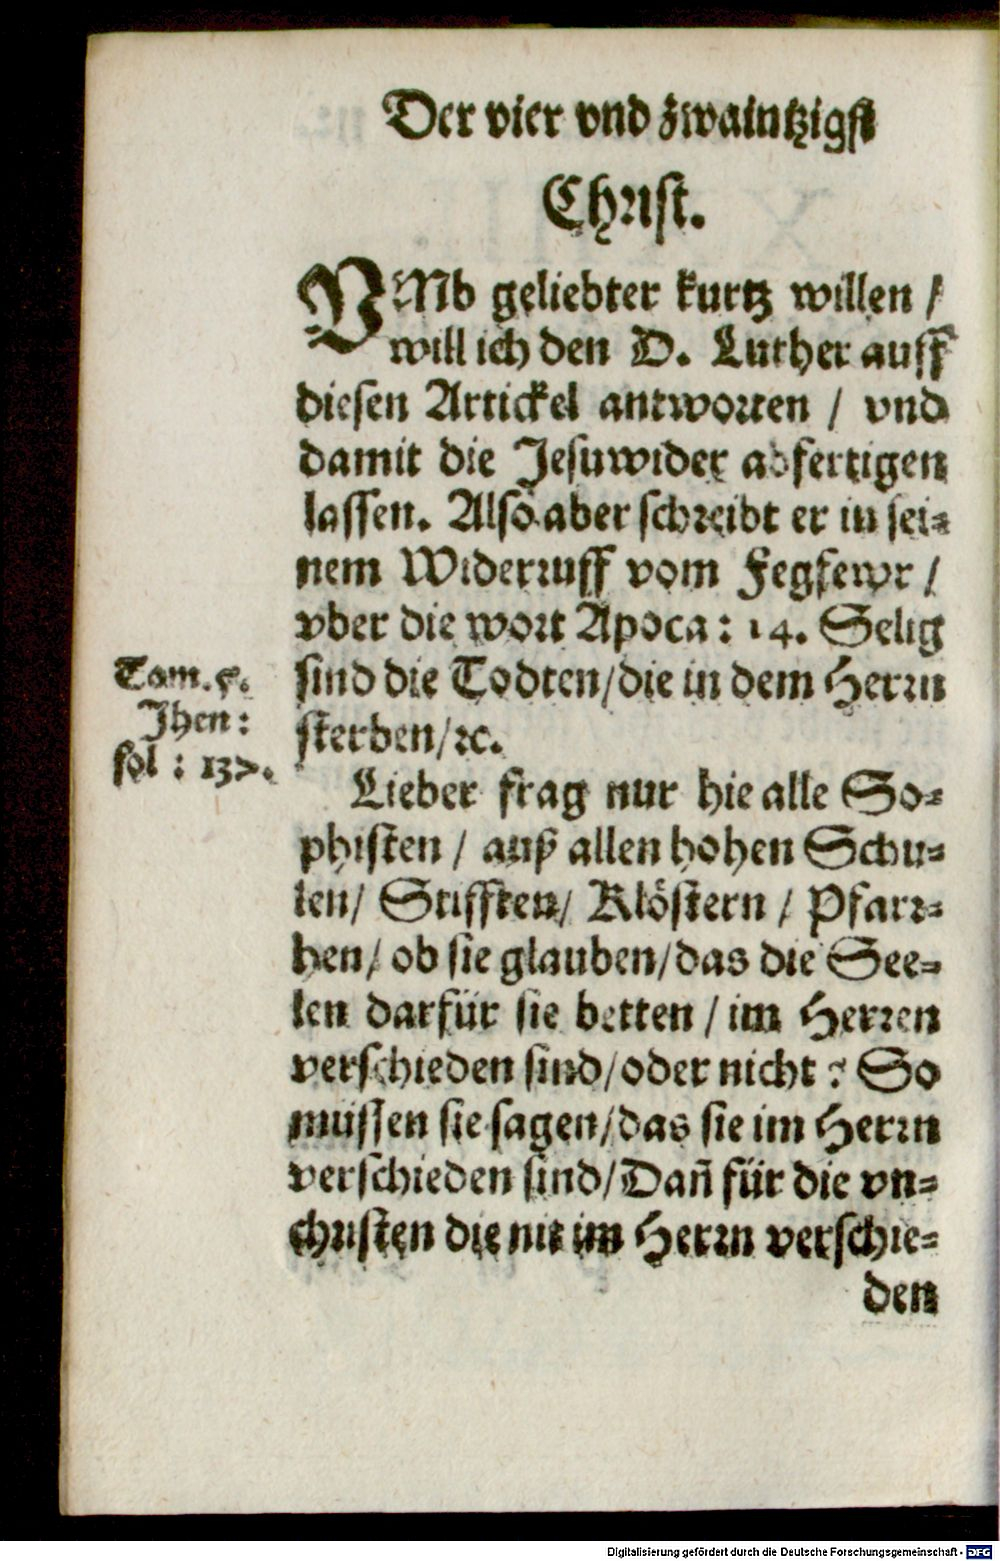 Der vier vnd zwaintzigst
Christ.
VMb geliebter kurtz willen /
will ich den D. Luther auff
diesen Artickel antworten / vnd
damit die Jesuwider abfertigen
lassen. Also aber schreibt er in sei⸗
nem Widerruff vom Fegfewr /
vber die wort Apoca: 14. Selig
sind die Todten/die in dem Herrn
sterben/ꝛc.
Tom. 5.
Jhen:
fol: 137.
Lieber frag nur hie alle So⸗
phisten / auß allen hohen Schu⸗
len/ Stifften/ Klöstern / Pfarr⸗
hen/ ob sie glauben/das die See⸗
len darfür sie betten / im Herren
verschieden sind/oder nicht? So
müssen sie sagen/das sie im Herrn
verschieden sind/Dañ für die vn⸗
christen die nit im Herrn verschie⸗
den
Digitalisierung gefördert durch die Deutsche Forschungsgemeinschaft - DFG